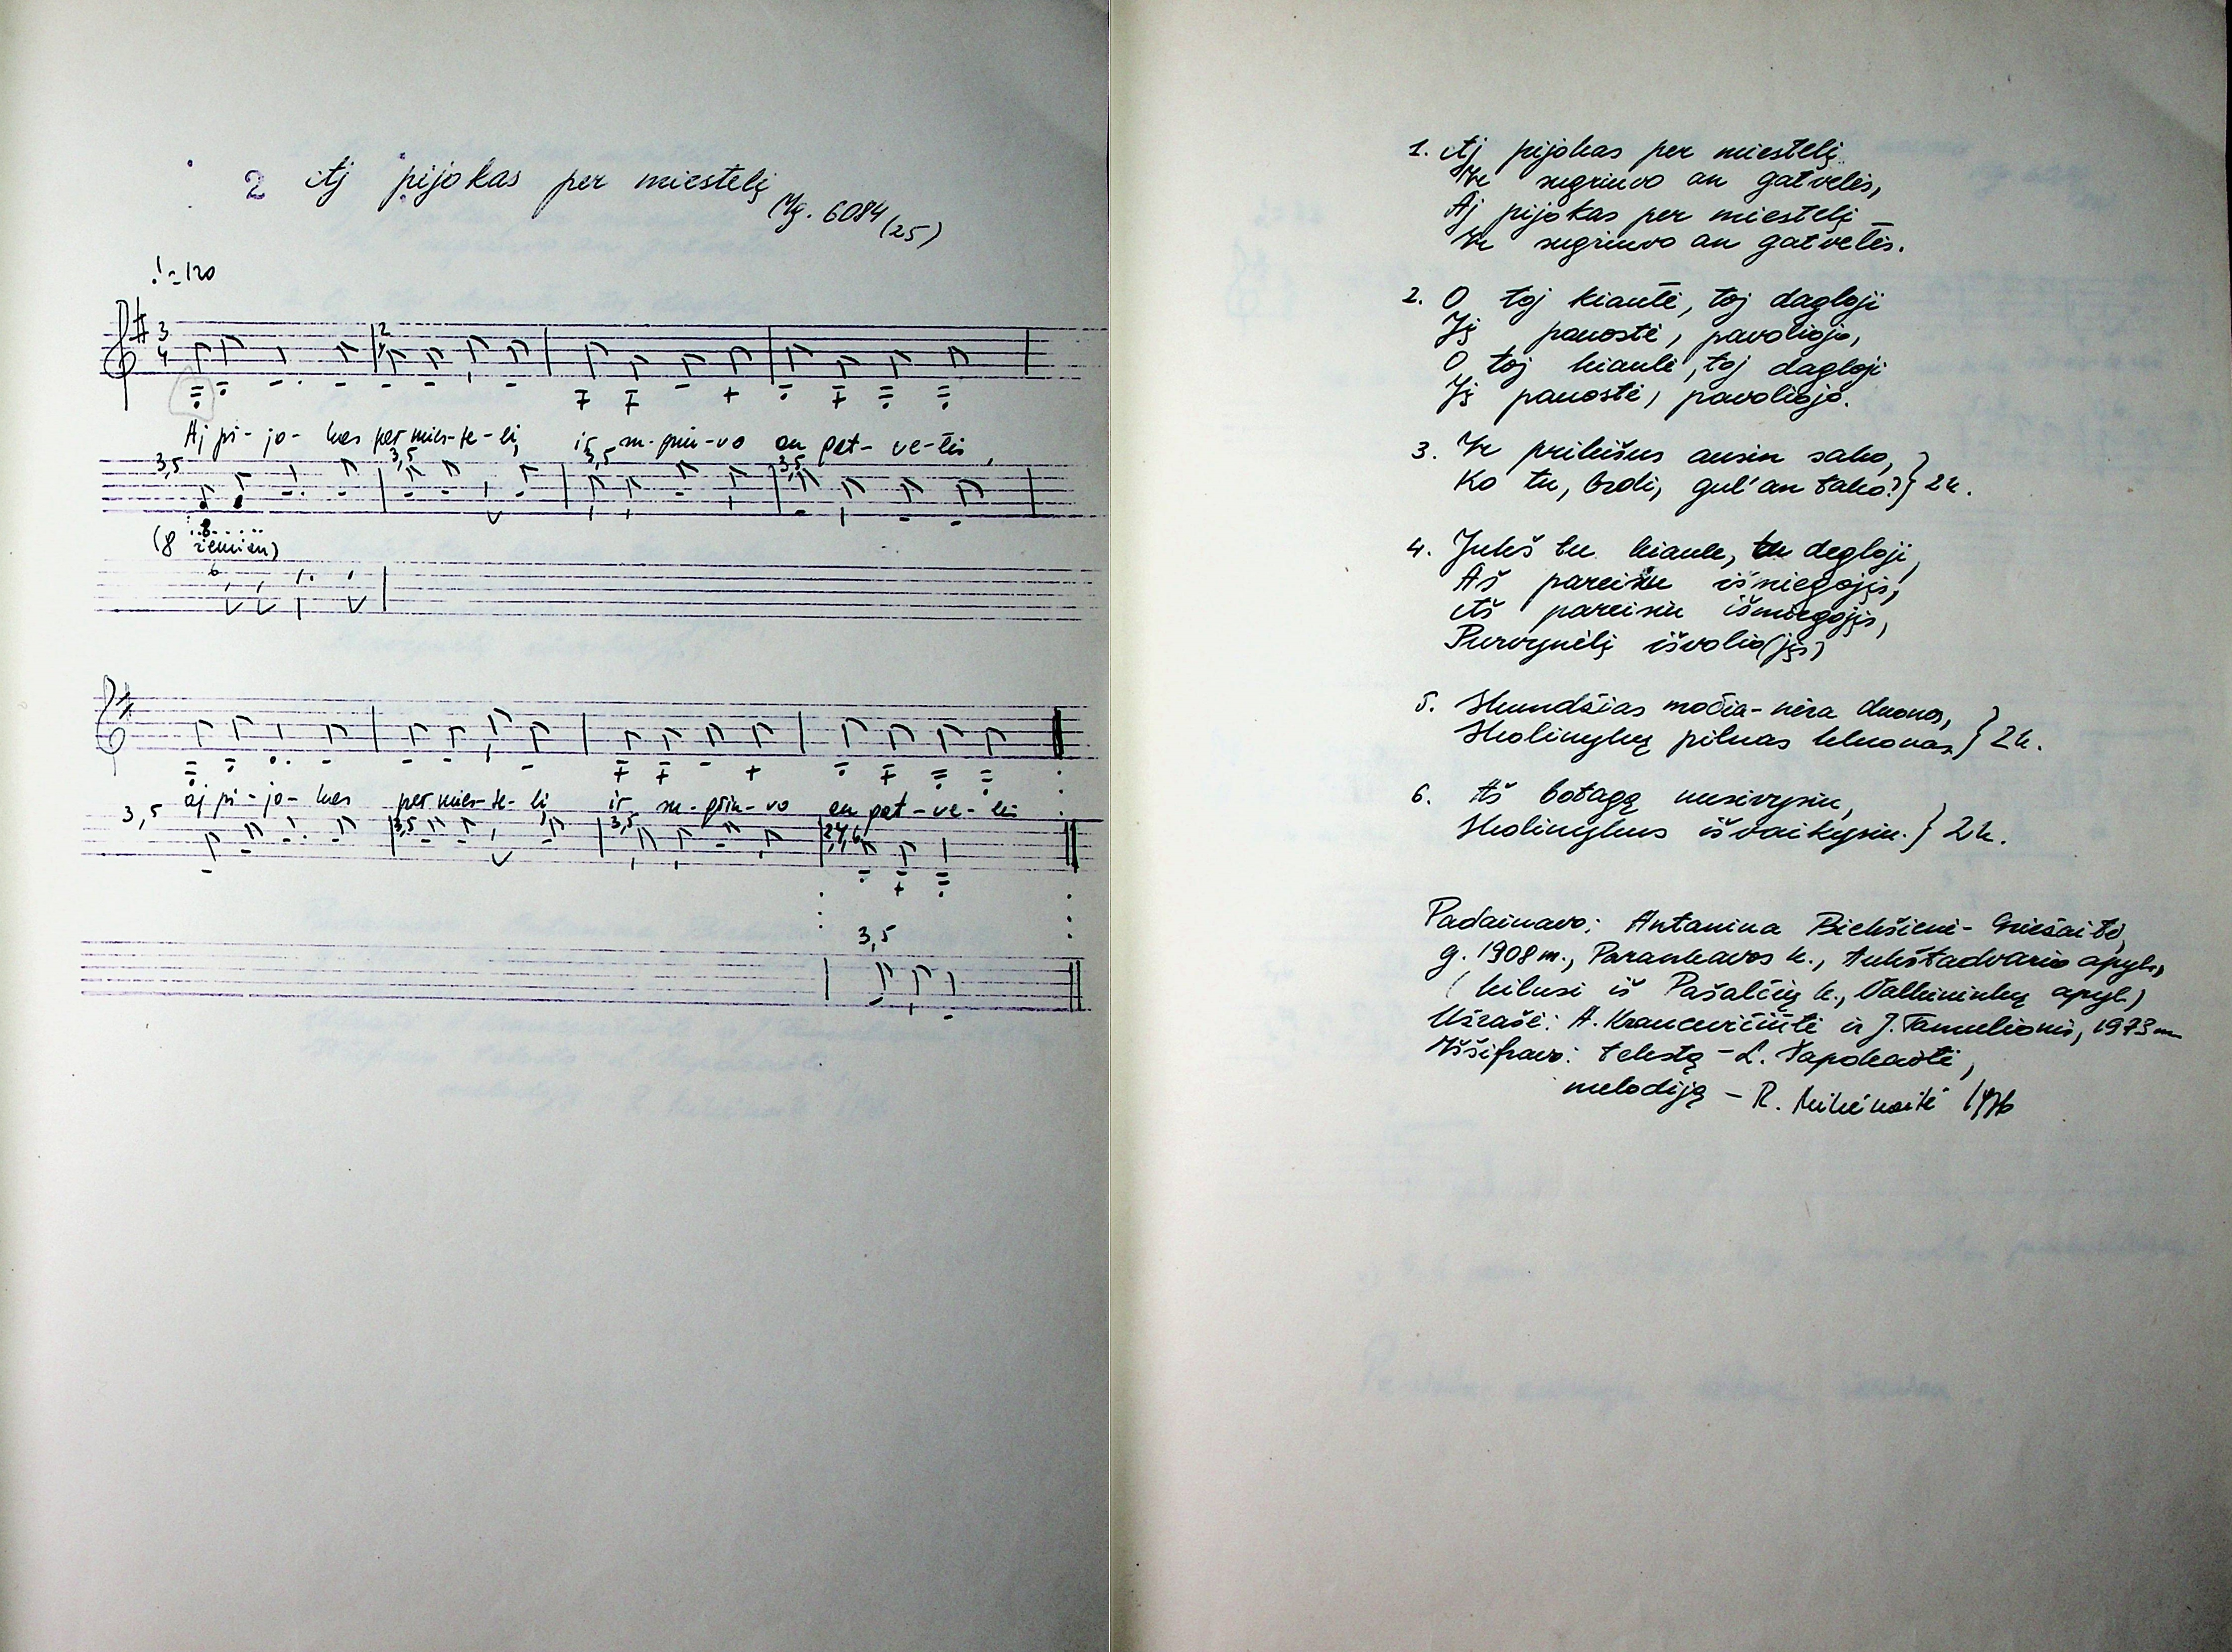 2 Aj pijokas per miestelį
Mg. 6084 (25)
♩=120
3
4
2
Aj pi-jo-kas per mies-te-lį ir su-griu-vo an gat-ve-lės,
3,5
3,5
3,5
3,5
(8 žemiau)
aj pi-jo-kas per mies-te-lį ir su-griu-vo an gat-ve-lės
3,5
3,5
3,5
2,4,6
3,5
1. Aj pijokas per miestelį
Ir sugriuvo an gatvelės,
Aj pijokas per miestelį –
Ir sugriuvo an gatvelės.
2. O toj kiaulė, toj dagloji
Jį panostė, pavoliojo,
O toj kiaulė, toj dagloji
Jį panostė, pavoliojo.
3. Ir prikišus ausin sako,
Ko tu, brolį, gul' an tako? } 2k.
4. Jukš tu kiaule, tu degloji,
Aš pareisiu išmiegojįs,
Aš pareisiu išmiegojįs,
Purvynėlį išvolio(jįs)
5. Skundžias močia – nėra duonos,
Skolinykų pilnas kluonas. } 2k.
6. Aš botagą nusivysiu,
Skolinykus išvaikysiu. } 2k.
Padainavo: Antanina Biekšienė –
g. 1908 m., k., Aukštadvario apyl.,
(kilusi iš Pašalčių k., Valkininkų apyl.)
Užrašė: A. Krancevičiūtė ir J. Tamulionis, 1973 m
Iššifravo: tekstą – L. Sapokaitė,
melodiją – R. 1976